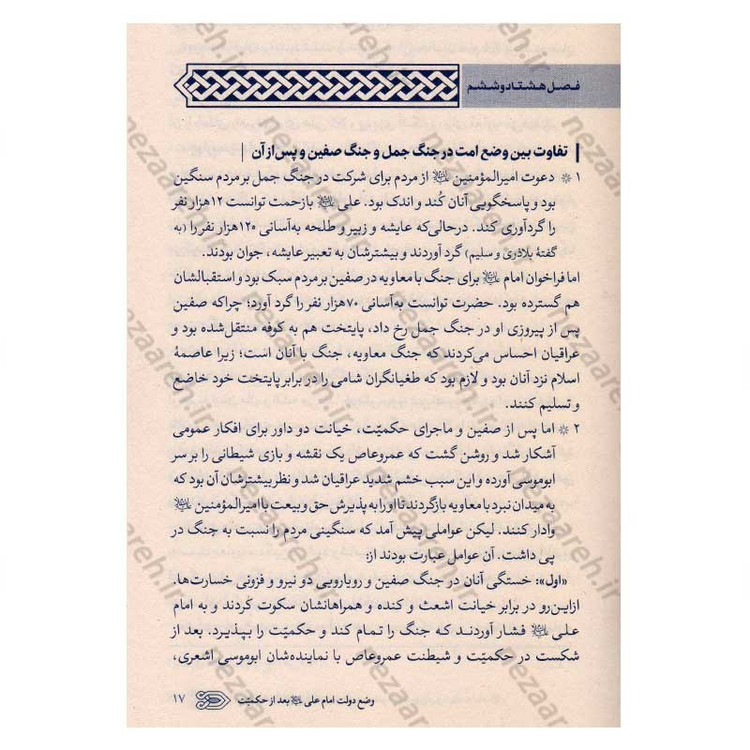 فصل هشتاد و ششم
تفاوت بین وضع امت در جنگ جمل و جنگ صفین و پس از آن
۱ * دعوت امیرالمؤمنین از مردم برای شرکت در جنگ جمل بر مردم سنگین
بود و پاسخگویی آنان کُند و اندک بود. علی بازحمت توانست ۱۲هزار نفر
را گردآوری کند. درحالی‌که عایشه و زبیر و طلحه به‌آسانی ۱۲۰هزار نفر را (به
گفتهٔ بلاذری و سلیم) گرد آوردند و بیشترشان به تعبیر عایشه، جوان بودند.
اما فراخوان امام برای جنگ با معاویه در صفین بر مردم سبک بود و استقبالشان
هم گسترده بود. حضرت توانست به‌آسانی ۷۰هزار نفر را گرد آورد؛ چراکه صفین
پس از پیروزی او در جنگ جمل رخ داد، پایتخت هم به کوفه منتقل‌شده بود و
عراقیان احساس می‌کردند که جنگ معاویه، جنگ با آنان است؛ زیرا عاصمهٔ
اسلام نزد آنان بود و لازم بود که طغیانگران شامی را در برابر پایتخت خود خاضع
و تسلیم کنند.
۲ * اما پس از صفین و ماجرای حکمیّت، خیانت دو داور برای افکار عمومی
آشکار شد و روشن گشت که عمروعاص یک نقشه و بازی شیطانی را بر سر
ابوموسی آورده و این سبب خشم شدید عراقیان شد و نظر بیشترشان آن بود که
به میدان نبرد با معاویه بازگردند تا او را به پذیرش حق و بیعت با امیرالمؤمنین
وادار کنند. لیکن عواملی پیش آمد که سنگینی مردم را نسبت به جنگ در
پی داشت. آن عوامل عبارت بودند از:
«اول»: خستگی آنان در جنگ صفین و رویارویی دو نیرو و فزونی خسارت‌ها.
ازاین‌رو در برابر خیانت اشعث و کنده و همراهانشان سکوت کردند و به امام
علی فشار آوردند که جنگ را تمام کند و حکمیّت را بپذیرد. بعد از
شکست در حکمیّت و شیطنت عمروعاص با نماینده‌شان ابوموسی اشعری،
وضع دولت امام علی بعد از حکمیّت ۱۷
nezaareh.ir